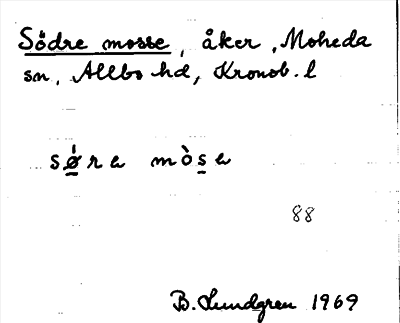 Södre mosse, åker, Moheda
sn, Allbo hd, Kronob. l
sǿ̱ra mòs̱a
88
B. Lundgren 1969